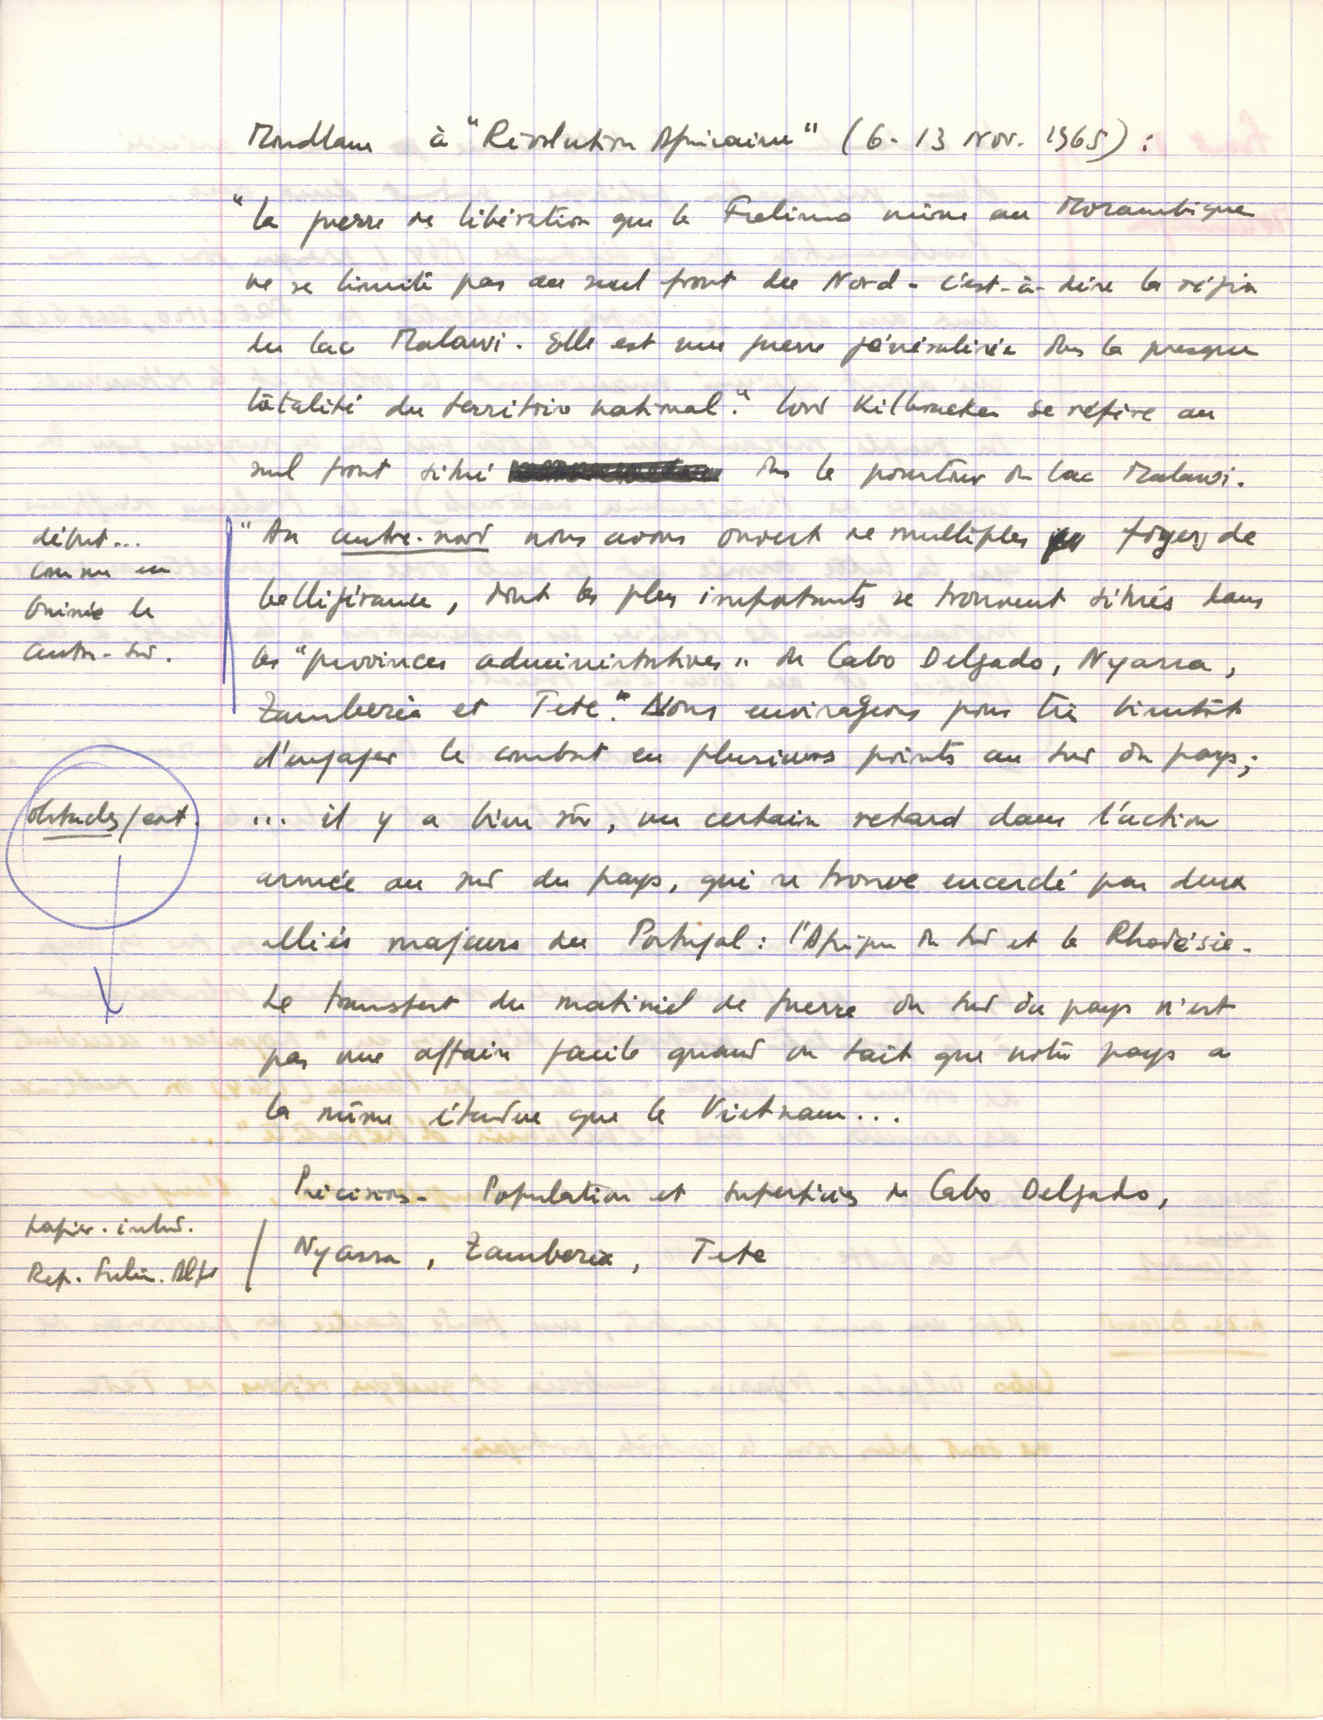 Mondlane à "Révolution Africaine" (6-13 Nov. 1965) :
"La guerre de libération que le Frelimo mène au Mozambique
ne se limite pas au seul front du Nord - c'est-à-dire la région
du lac Malawi. Elle est une guerre généralisée ds la presque
totalité du territoire national". Lord Kilbracken se réfère au
seul front situé ds le pourtour du lac Malawi.
"Au centre-nord nous avons ouvert de multiples foyers de
belligérance, dont les plus importants se trouvent situés dans
les "provinces administratives" de Cabo Delgado, Nyassa,
Zambezia et Tete". Nous envisageons pour très bientôt
d'engager le combat en plusieurs points au sud du pays;
... il y a bien sûr, un certain retard dans l'action
armée au sud du pays, qui se trouve encerclé par deux
alliés majeurs du Portugal : l'Afrique du Sud et la Rhodésie.
Le transport du matériel de guerre au sud du pays n'est
pas une affaire facile quand on sait que notre pays a
la même étendue que le Vietnam...
Précisions - Population et superficies de Cabo Delgado,
Nyassa, Zambezia, Tete
début...
comme en
Guinée le
centre-sud.
obstacles/ent.
Rep. Frelim. Alger